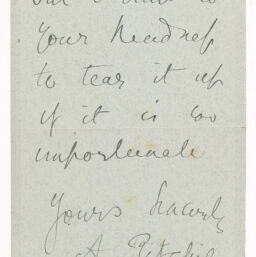 your kindness
to tear it up
if it is too
importunate
Yours sincerely
A Ritchie